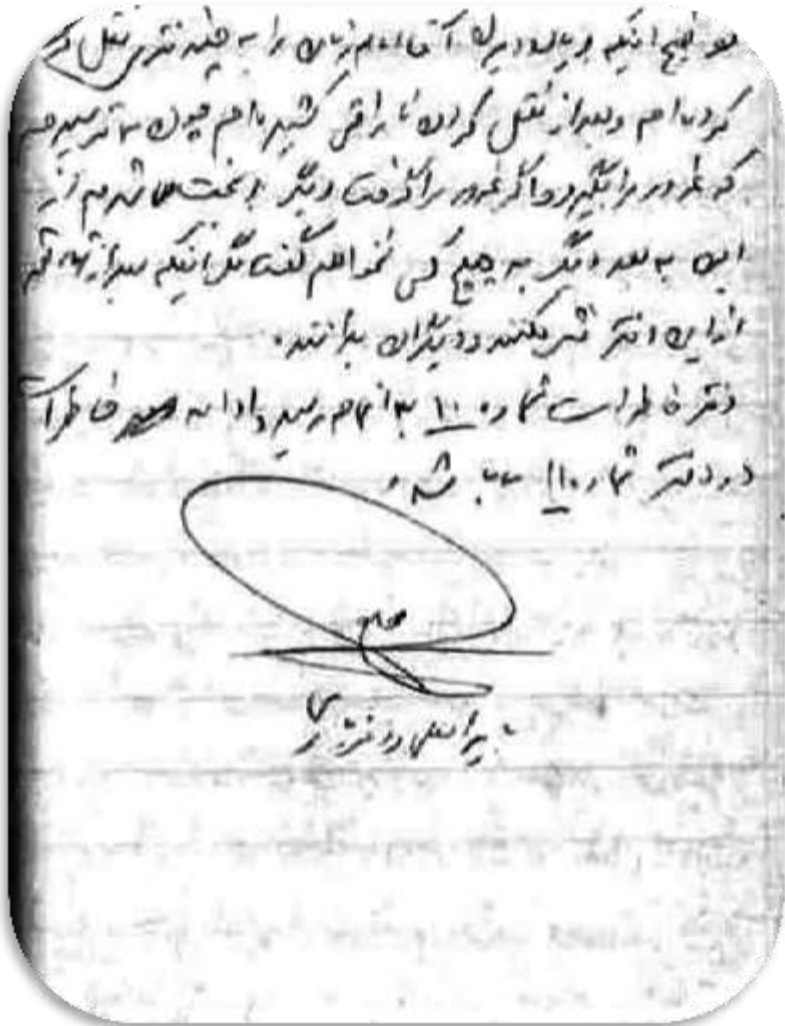 توضیح اینکه جریان دیدن آقا امام زمان را به چند نفری نقل
کرده‌ام و بعد از نقل کردن ناراحتی کشیده‌ام چون می‌ترسیدم
که غرور مرا بگیرد و اگر غرور مرا گرفت دیگر بدبخت می‌شدم از
این به بعد دیگر به هیچ کس نخواهم گفت مگر اینکه بعد از
از این دفتر نشر کنند و دیگران بدانند.
دفتر خاطرات شماره ۱۰ به اتمام رسید و ادامه خاطرات
در دفتر شماره ۱۱ می‌باشد.